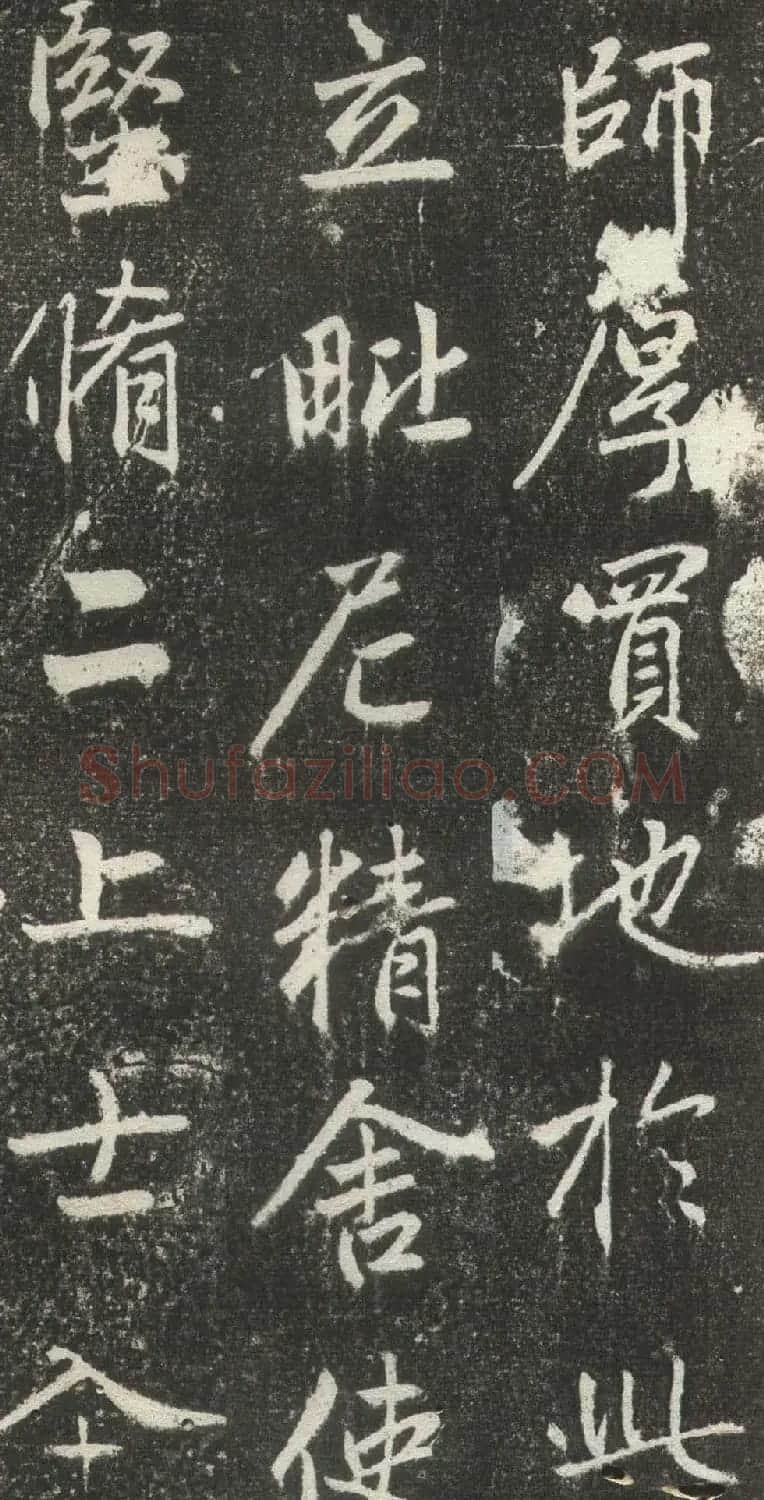 師厚買地於此
立毗尼精舍使
堅脩二上士
Shufaziliao.COM